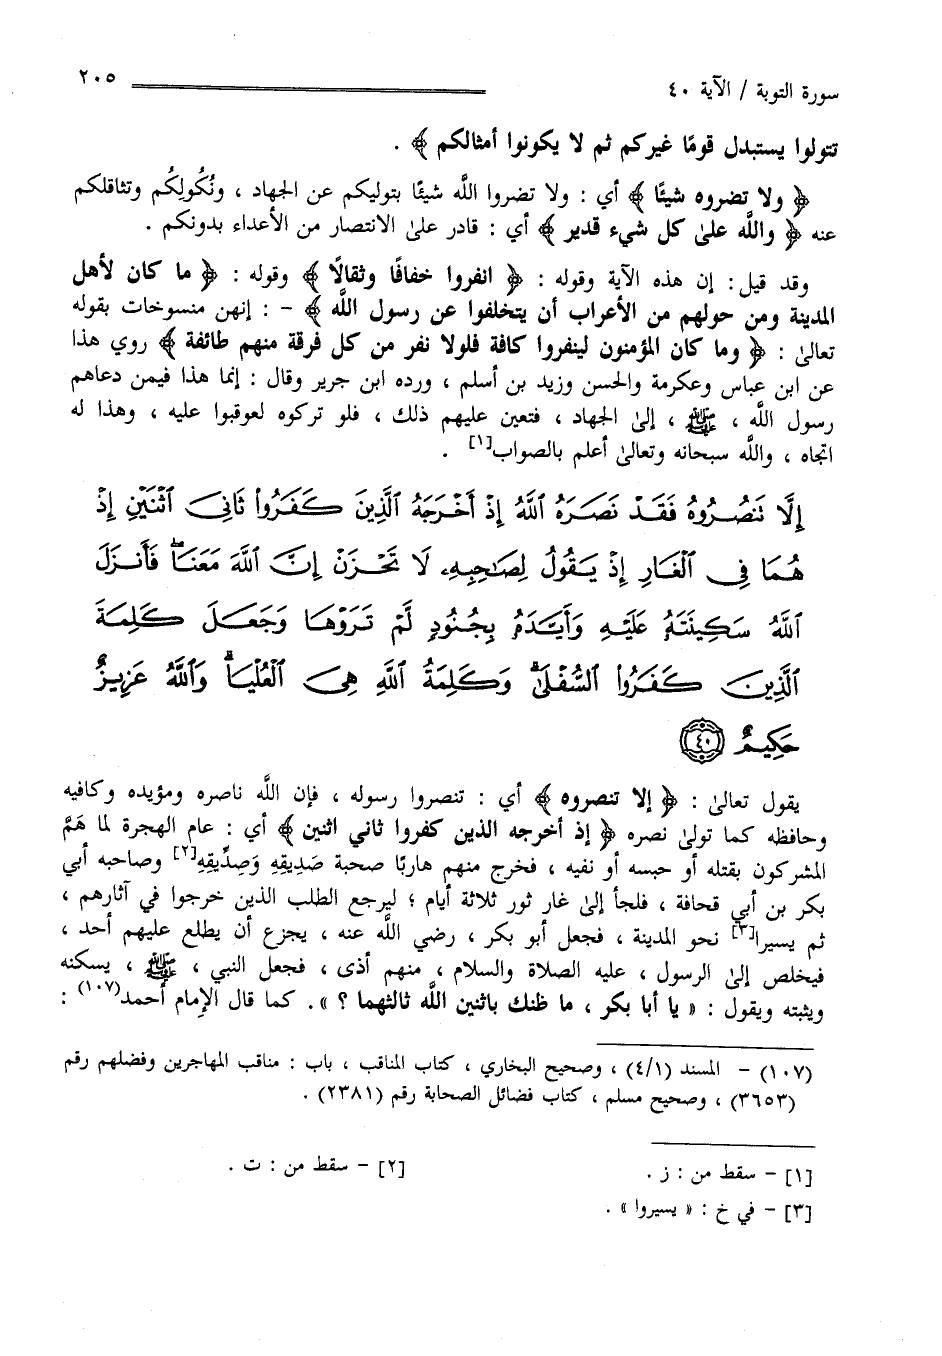 سورة التوبة / الآية ٤٠ ٢٠٥
تتولوا يستبدل قومًا غيركم ثم لا يكونوا أمثالكم ﴾ .
﴿ ولا تضروه شيئًا ﴾ أي : ولا تضروا اللَّه شيئًا بتوليكم عن الجهاد ، ونُكُولِكُم وتثاقلكم
عنه ﴿ واللَّه علىٰ كل شيء قدير ﴾ أي : قادر علىٰ الانتصار من الأعداء بدونكم .
وقد قيل : إن هذه الآية وقوله : ﴿ انفروا خفافًا وثقالًا ﴾ وقوله : ﴿ ما كان لأهل
المدينة ومن حولهم من الأعراب أن يتخلفوا عن رسول اللَّه ﴾ - : إنهن منسوخات بقوله
تعالىٰ : ﴿ وما كان المؤمنون لينفروا كافة فلولا نفر من كل فرقة منهم طائفة ﴾ روي هذا
عن ابن عباس وعكرمة والحسن وزيد بن أسلم ، ورده ابن جرير وقال : إنما هذا فيمن دعاهم
رسول اللَّه ، ﷺ ، إلىٰ الجهاد ، فتعين عليهم ذلك ، فلو تركوه لعوقبوا عليه ، وهذا له
اتجاه ، واللَّه سبحانه وتعالىٰ أعلم بالصواب[١] .
إِلَّا تَنصُرُوهُ فَقَدْ نَصَرَهُ ٱللَّهُ إِذْ أَخْرَجَهُ ٱلَّذِينَ كَفَرُوا۟ ثَانِىَ ٱثْنَيْنِ إِذْ
هُمَا فِى ٱلْغَارِ إِذْ يَقُولُ لِصَٰحِبِهِۦ لَا تَحْزَنْ إِنَّ ٱللَّهَ مَعَنَا ۖ فَأَنزَلَ
ٱللَّهُ سَكِينَتَهُۥ عَلَيْهِ وَأَيَّدَهُۥ بِجُنُودٍ لَّمْ تَرَوْهَا وَجَعَلَ كَلِمَةَ
ٱلَّذِينَ كَفَرُوا۟ ٱلسُّفْلَىٰ ۗ وَكَلِمَةُ ٱللَّهِ هِىَ ٱلْعُلْيَا ۗ وَٱللَّهُ عَزِيزٌ
حَكِيمٌ ٤٠
يقول تعالىٰ : ﴿ إلا تنصروه ﴾ أي : تنصروا رسوله ، فإن اللَّه ناصره ومؤيده وكافيه
وحافظه كما تولىٰ نصره ﴿ إذ أخرجه الذين كفروا ثاني اثنين ﴾ أي : عام الهجرة لما هَمَّ
المشركون بقتله أو حبسه أو نفيه ، فخرج منهم هاربًا صحبة صَدِيقِهِ وَصِدِّيقِهِ[٢] وصاحبه أبي
بكر بن أبي قحافة ، فلجأ إلىٰ غار ثور ثلاثة أيام ؛ ليرجع الطلب الذين خرجوا في آثارهم ،
ثم يسيرا[٣] نحو المدينة ، فجعل أبو بكر ، رضي اللَّه عنه ، يجزع أن يطلع عليهم أحد ،
فيخلص إلىٰ الرسول ، عليه الصلاة والسلام ، منهم أذى ، فجعل النبي ، ﷺ ، يسكنه
ويثبته ويقول : « يا أبا بكر ، ما ظنك باثنين اللَّه ثالثهما ؟ ». كما قال الإمام أحمد(١٠٧) :
(١٠٧) - المسند (٤/١) ، وصحيح البخاري ، كتاب المناقب ، باب : مناقب المهاجرين وفضلهم رقم
(٣٦٥٣) ، وصحيح مسلم ، كتاب فضائل الصحابة رقم (٢٣٨١) .
[١] - سقط من : ز . [٢] - سقط من : ت .
[٣] - في خ : « يسيروا » .